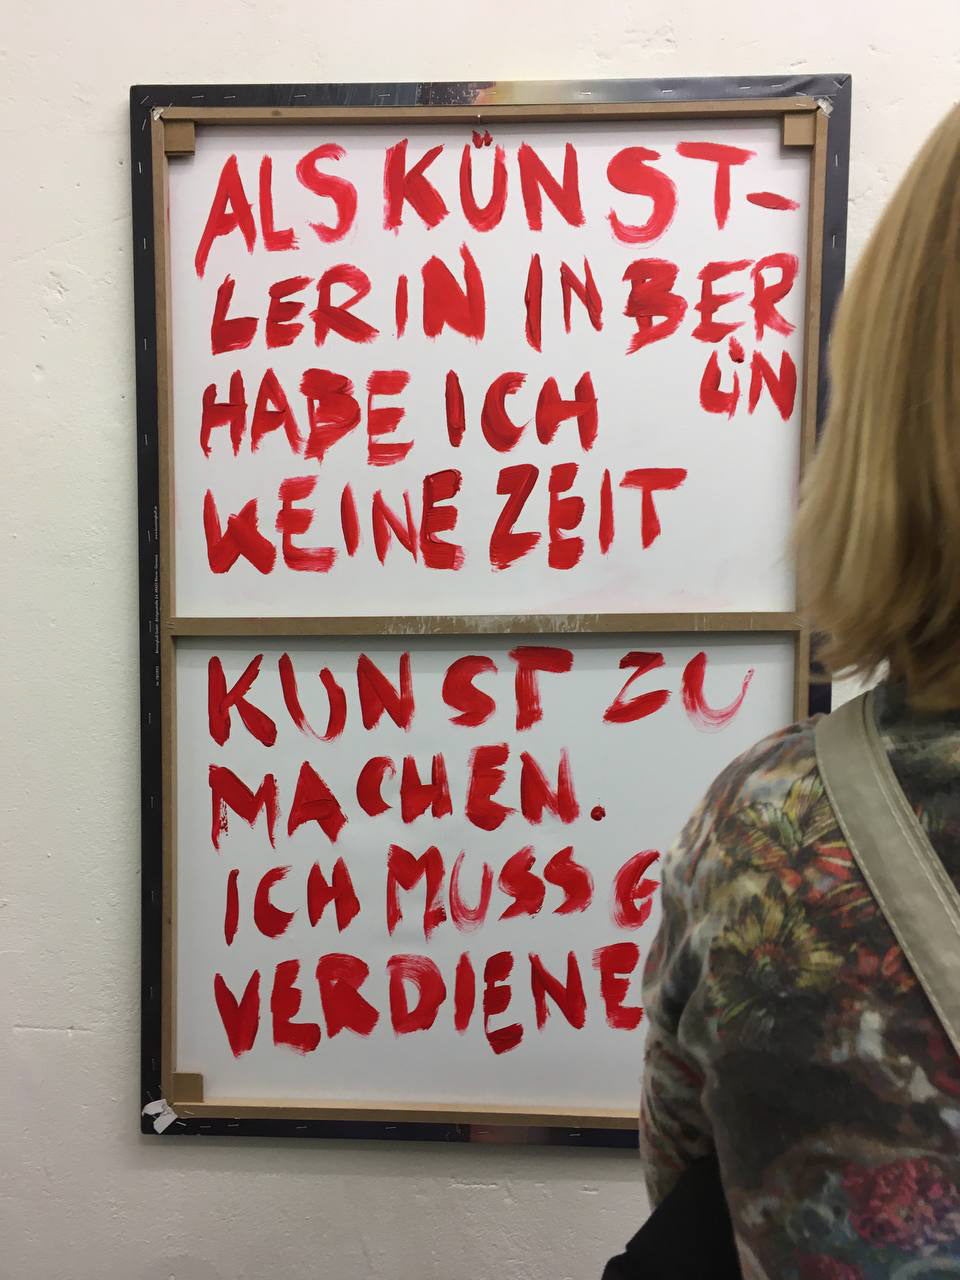 ALS KÜNST-
LERIN IN BER
LiN
HABE ICH
KEINE ZEIT
KUNST ZU
MACHEN.
ICH MUSS G
VERDIENE